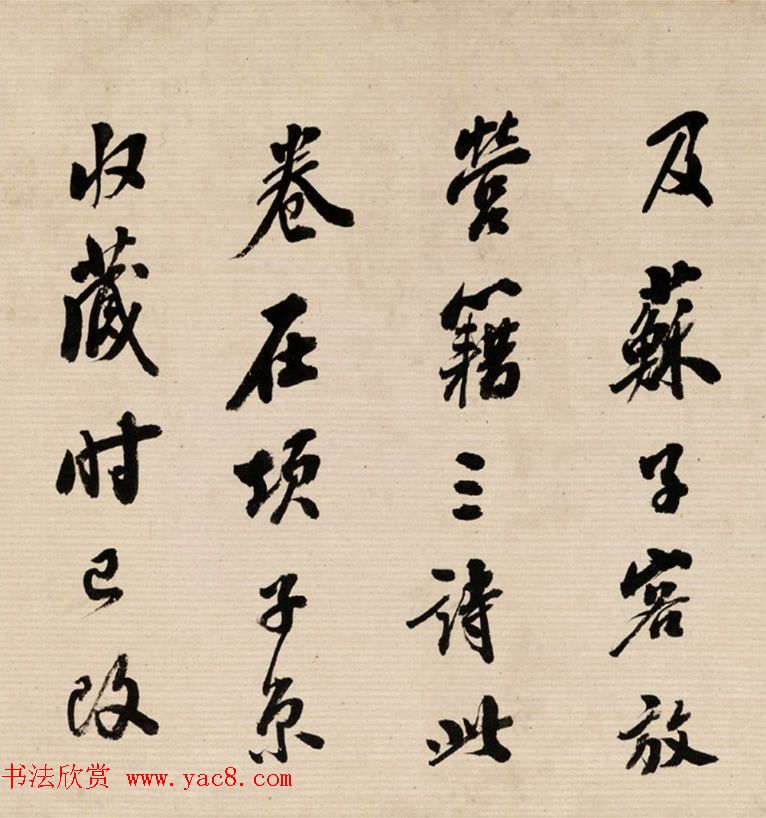 及蘇子容放
營籍三詩此
卷在項子京
收藏時已改
书法欣赏 www.yac8.com